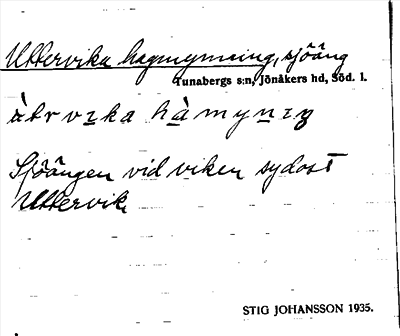 Uttervika hagmynning, sjöäng
Tunabergs s:n, Jönåkers hd, Söd. l.
àtrvɪka hàmynɪŋ
Sjöängen vid viken sydost
Uttervik
STIG JOHANSSON 1935.